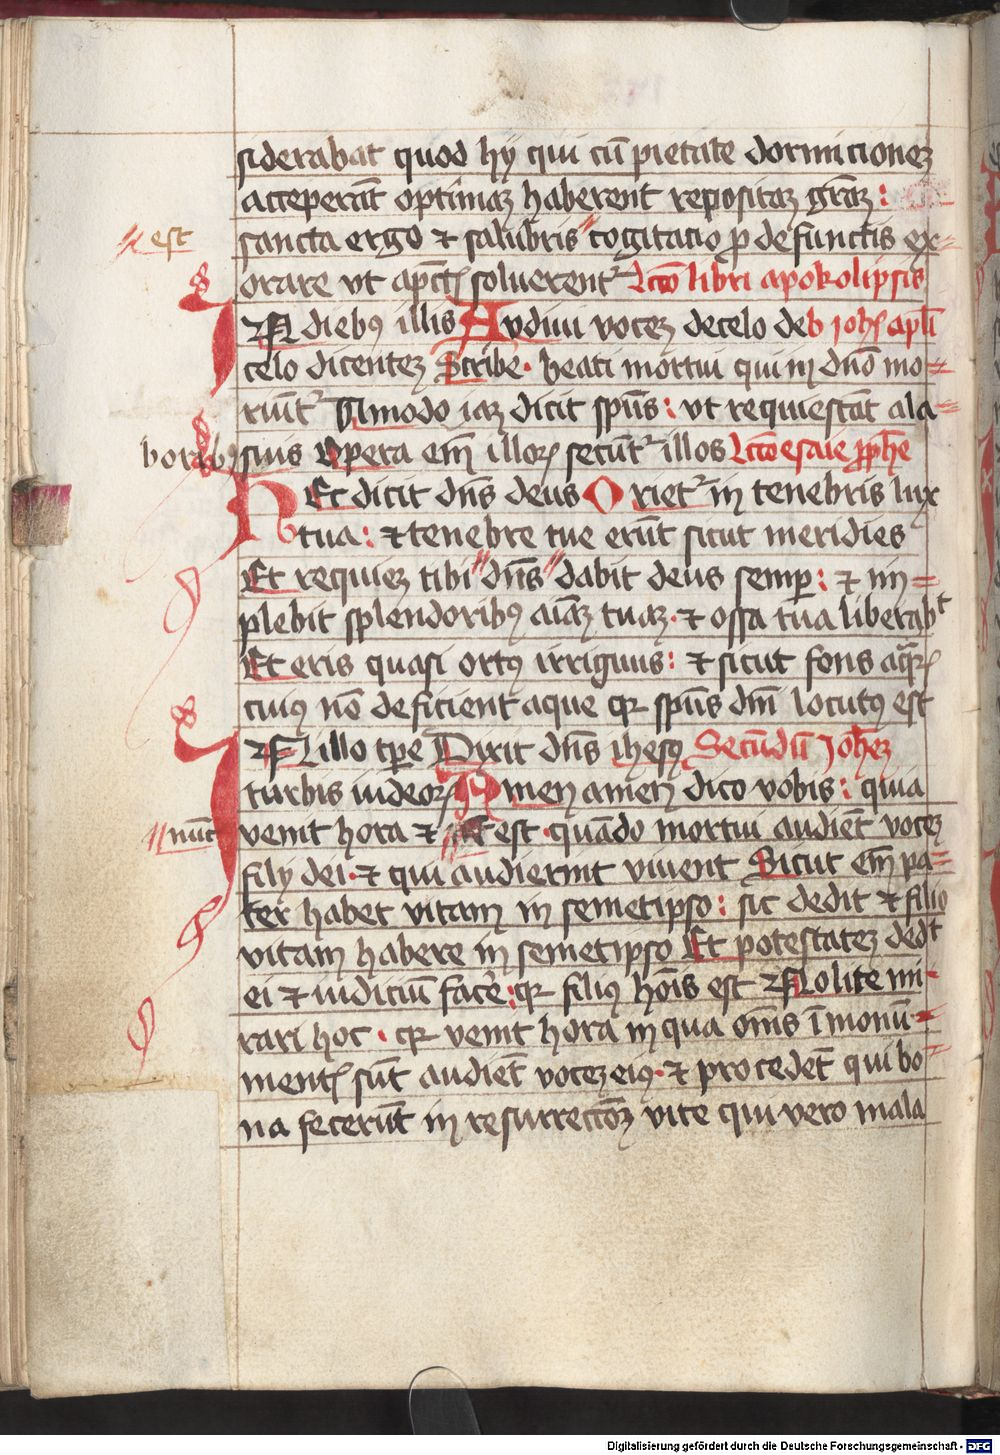 siderabat quod hÿ qui cū pietate dormicionez
acceperāt optimaz haberent repositaz grāz :
est
sancta ergo ⁊ salubris cogitacio ꝓ defunctis ex=
orare vt a pctꝭ soluerentᷣ Lcō libri apokolipsis
IN diebꝰ illis Audiui vocez de celo de b johīs apl̄i
celo dicentez Scribe · beati mortui qui in dnō mo=
riūtᷣ Amodo iaz dicit spūs : vt requiescāt a la=
boribꝰ suis Opera em̄ illoꝝ secūtᷣ illos Lcō esaie ꝓphē
HEc dicit dn̄s deus Orietᷣ in tenebris lux
tua : ⁊ tenebre tue erūt sicut meridies
Et requiez tibi dn̄s dabit deus semꝑ : ⁊ im=
plebit splendoribꝰ aīaz tuaz · ⁊ ossa tua liberabt
Et eris quasi ortꝰ irriguus : ⁊ sicut fons aqꝝ
cuiꝰ nō deficient aque qꝛ spūs dn̄i locutꝰ est
IN illo tꝑe Dixit dn̄s ihesꝰ Secūdū Joh̄ez
turbis iudeoꝝ Amen amen dico vobis : quia
nūc
venit hora ⁊ est · quādo mortui audiēt vocez
filÿ dei · ⁊ qui audierint viuent Sicut em̄ pa=
ter habet vitam in semetipso : sic dedit ⁊ filio
vitam habere in semetipso Et potestatez dedt
ei ⁊ iudiciū facē : qꝛ filiꝰ hōīs est Nolite mi=
rari hoc · qꝛ venit hora in qua om̄s ī monū=
mentꝭ sūt audiēt vocez eiꝰ · ⁊ procedēt qui bo=
na fecerūt in resurrectōez vite qui vero mala
Digitalisierung gefördert durch die Deutsche Forschungsgemeinschaft - DFG